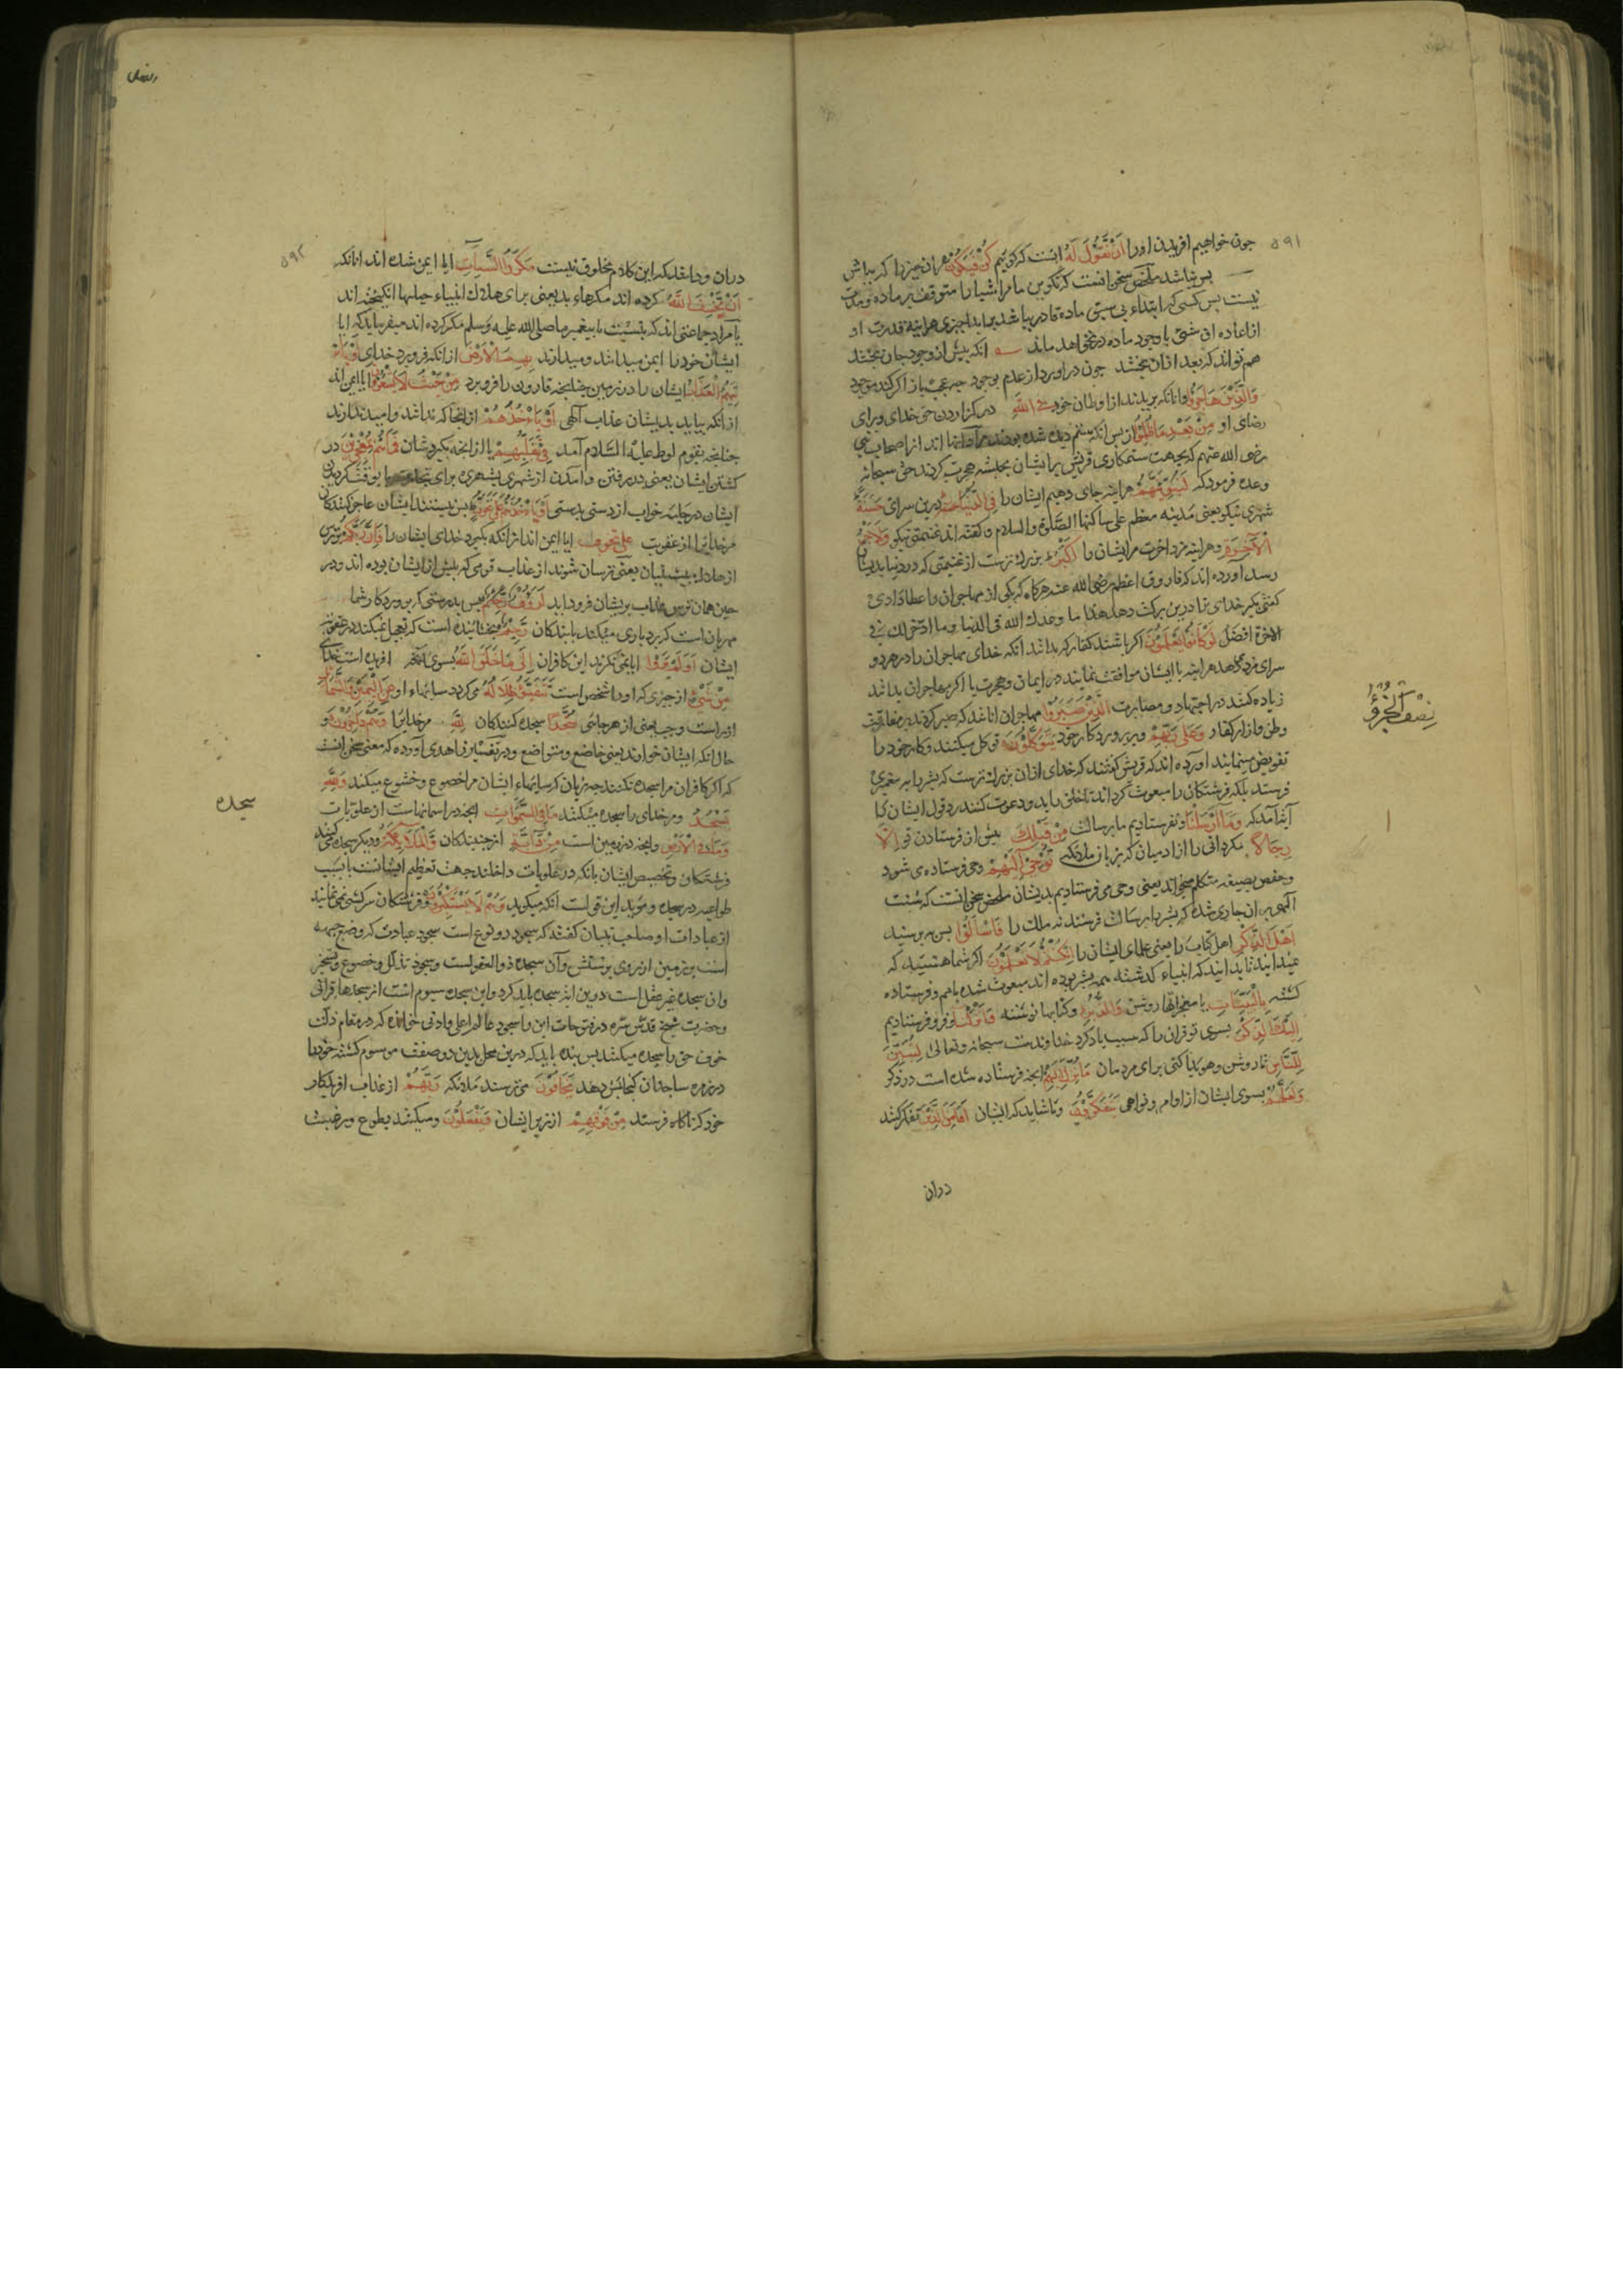 ۵۹۱
چون خواهیم افریدن اورا اَنْ نَقُوْلَ لَهُ انست که کوییم کُنْ فَیَکُوْنُ مران چیزرا که بباش
پس بباشد ملخص سخن انست که تکوین ما مر اشیا را متوقف بر ماده و مدت
نیست پس کسی که ابتداء بی سبق ماده قادر باشد بر ابدا چیزی هراینه قدرت او
از اعاده ان شیٔ با وجود ماده در نخواهد ماند انکه پیش از وجود جان بخشد
هم تواند که بعد ازان بخشد چون در اورد از عدم بوجود چه عجب باز اکر کند موجود
وَالَّذِیْنَ هَاجَرُوْا وانانکه بریدند از اوطان خود فِی اللّٰهِ در کزاردن حق خدای و برای
رضای او مِنْ بَعْدِ مَا ظُلِمُوْا از پس انکه ستم دیده شده بودند اند از اصحاب نبی
رضی الله عنهم که بجهت ستمکاری قریش بر ایشان بحبشه هجرت کردند حق سبحانه
وعده فرمود که لَنُبَوِّئَنَّهُمْ هراینه جای دهیم ایشان را فِی الدُّنْیَا حَسَنَةً درین سرای
شهری نیکو یعنی مدینه معظم علی ساکنها الصلوة والسلام وکفته اند غنیمتی نیکو وَلَاَجْرُ
الْاٰخِرَةِ و هراینه مزد اخرت مر ایشان را اَکْبَرُ بزرك ترست از غنیمتی که در دنیا بدیشان
رسد آورده اند که فاروق اعظم رضی الله عنه هرکاه که یکی از مهاجران را عطا دادی
کفتی بکیر خدای ترا درین برکت دهد هذا ما وعدك الله فی الدنیا وما ادخر لك فی
الاخرة افضل لَوْ کَانُوْا یَعْلَمُوْنَ اکر باشند کفار که بدانند انکه خدای مهاجران را در هر دو
سرای مزد دهد هراینه با ایشان موافقت نمایند در ایمان و هجرت یا اکر مهاجران بدانند
زیاده کنند در اجتهاد و مصابرت اَلَّذِیْنَ صَبَرُوْا مهاجران انانند که صبر کردند بر مفارقت
وطن و ازار کفار وَعَلٰی رَبِّهِمْ و بر پروردکار خود یَتَوَکَّلُوْنَ توکل میکنند و کار خود را
تفویض مینمایند اورده اند که قریش کفتند که خدای ازان بزرك ترست که بشر را به پیغمبری
فرستد بلکه فرشتکان را مبعوث کرداند تا خلق را بدو دعوت کنند رد قول ایشان را
آیه آمد که وَمَا اَرْسَلْنَا و نفرستادیم ما برسالت مِنْ قَبْلِكَ پیش از فرستادن تو اِلَّا
رِجَالًا مکر دانی را از ادمیان که بزبان ملائکه نُوْحِیْ اِلَیْهِمْ وحی فرستاده می شود
وحفص بصیغه متکلم میخواند یعنی وحی می فرستادیم بدیشان ملخص سخن انست که سنت
آلهی بران جاری شده که بشر را برسالت فرستد نه ملك را فَاسْاَلُوْا پس به پرسید
اَهْلَ الذِّکْرِ اهل کتاب را یعنی علمای ایشان را اِنْ کُنْتُمْ لَا تَعْلَمُوْنَ اکر شما هستید که
نمیدانید تا بدانید که انبیاء کذشته همه بشر بوده اند مبعوث شده باهم و فرستاده
کشته بِالْبَیِّنَاتِ با معجزاتهاء روشن وَالزُّبُرِ وکتابهاء نوشته وَاَنْزَلْنَا و فرو فرستادیم
اِلَیْكَ الذِّکْرَ بسوی تو قران را که سبب یاد کرد خداوندست سبحانه وتعالی لِتُبَیِّنَ
لِلنَّاسِ تا روشن و هویدا کنی برای مردمان مَا نُزِّلَ اِلَیْهِمْ انچه فرستاده شده است در ذکر
وَلَعَلَّهُمْ بسوی ایشان از اوامر و نواهی یَتَفَکَّرُوْنَ وتا شاید که ایشان تفکر کنند اَفَاَمِنَ الَّذِیْنَ
دران
نِصْفُ الْجُزْءِ
۵۹۲
دران و دانند که این کلام مخلوق نیست مَکَرُوا السَّیِّاٰتِ ایا ایمن شده اند انانکه
اَنْ یَّخْسِفَ اللّٰهُ کرده اند مکرهاء بد یعنی برای هلاك انبیاء حیلها انکیخته اند
یا مراد جماعتی اند که بنسبت با پیغمبر ما صلی الله علیه وسلم مکر کرده اند میفرماید که ایا
ایشان خود را ایمن میدانند و میدارند بِهِمُ الْاَرْضَ ازانکه فرو برد خدای اَوْ یَاْتِ
یَهُمُ الْعَذَابُ ایشان را در زمین چنانچه قارون را فرو برد مِنْ حَیْثُ لَا یَشْعُرُوْنَ ایا ایمن اند
ازانکه بیاید بدیشان عذاب آلهی اَوْ یَاْخُذَهُمْ ازانجا که ندانند وامید ندارند
چنانچه بقوم لوط علیه السلام آمد فِیْ تَقَلُّبِهِمْ یا ازانچه بکیردشان فَمَا هُمْ بِمُعْجِزِیْنَ در
کشتن ایشان یعنی در رفتن و امدن از شهری بشهری برای تجارت یا بوقت کردیدن
ایشان در جامه خواب از دستی بدستی اَوْ یَاْخُذَهُمْ عَلٰی تَخَوُّفٍ پس نیستند ایشان عاجز کنندکان
مر خدایرا از عقوبت علی تخوف ایا ایمن اند ازانکه بکیرد خدای ایشان را فَاِنَّ رَبَّکُمْ بر ترس
از هلاك پیشینیان یعنی ترسان شوند از عذاب قومی که پیش از ایشان بوده اند و در
حین همان ترس عذاب بریشان فرود آید لَرَؤُفٌ پس بدرستی که پروردکار شما
مهربان است که بردباری میکند با بندکان رَحِیْمٌ بخشاینده است که تعجیل نمیکند در عقوبت
ایشان اَوَلَمْ یَرَوْا ایا نمی نکرند این کافران اِلٰی مَا خَلَقَ اللّٰهُ بسوی آنچه افریده است خدای
مِنْ شَیْءٍ از چیزی که اورا شخص است یَتَفَیَّؤُا ظِلَالُهٗ می کردد سایهاء او عَنِ الْیَمِیْنِ وَالشَّمَائِلِ
از راست و چپ یعنی از هر جانبی سُجَّدًا سجده کنندکان لِلّٰهِ مر خدایرا وَهُمْ دَاخِرُوْنَ و
حال انکه ایشان خوارند یعنی خاضع و متواضع و در تفسیر زاهدی آورده که معنی سخن انست
که اکر کافران مرا سجده نکنند چه زیان که سایهاء ایشان مرا خضوع و خشوع میکند وَلِلّٰهِ
یَسْجُدُ و مر خدای را سجده میکنند مَا فِی السَّمٰوَاتِ انچه در اسمانهاست از علویات
وَمَا فِی الْاَرْضِ وانچه در زمین است مِنْ دَابَّةٍ از جنبندکان وَالْمَلَائِکَةُ و دیکر سجده می کنند
فرشتکان و تخصیص ایشان بانکه در علویات داخلند جهت تعظیم ایشانست یا بسبب
طواعیه در سجده و موید این قول است انکه میکوید وَهُمْ لَا یَسْتَکْبِرُوْنَ و فرشتکان سرکشی نمی نمایند
از عبادات او صاحب تبیان کفته که سجود دو نوع است سجود عبادت که وضع جبهه
است بر زمین از روی پرستش وآن سجده ذو العقولست و سجود تذلل و خضوع و تسخیر
وان سجده غیر عقل است درین ایه سجده باید کرد و این سجده سیوم است از سجدهاء قرانی
وحضرت شیخ قدس سره در فتوحات این را سجود عالم اعلی و ادنی خوانده که در مقام ذلت
خوف حق را سجده میکنند پس بنده باید که درین محل بدین دو صفت موسوم کشته خود را
در زمره ساجدان کنجایش دهد یَخَافُوْنَ می ترسند ملائکه رَبَّهُمْ از عذاب افریدکار
خود که ناکاه فرستد مِنْ فَوْقِهِمْ از زبر ایشان وَیَفْعَلُوْنَ و میکنند بطوع و رغبت
سجده